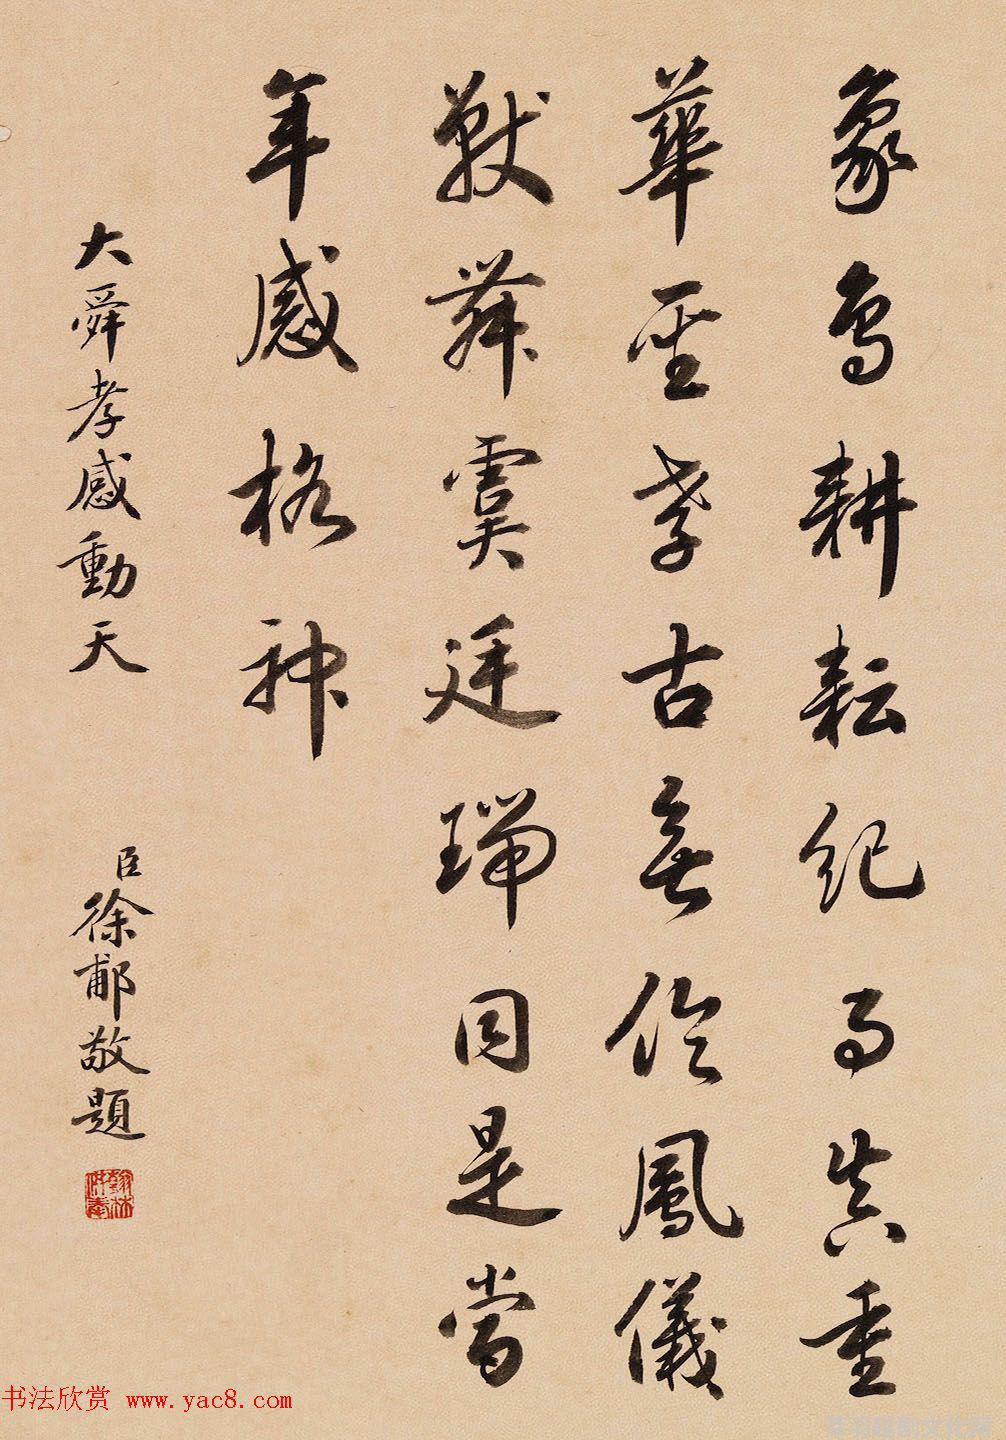 象鳥耕耘紀事真重
華至孝古無倫鳳儀
獸舞虞廷瑞同是當
年感格神
大舜孝感動天
臣徐郙敬題
翰林供奉
书法欣赏 www.yac8.com